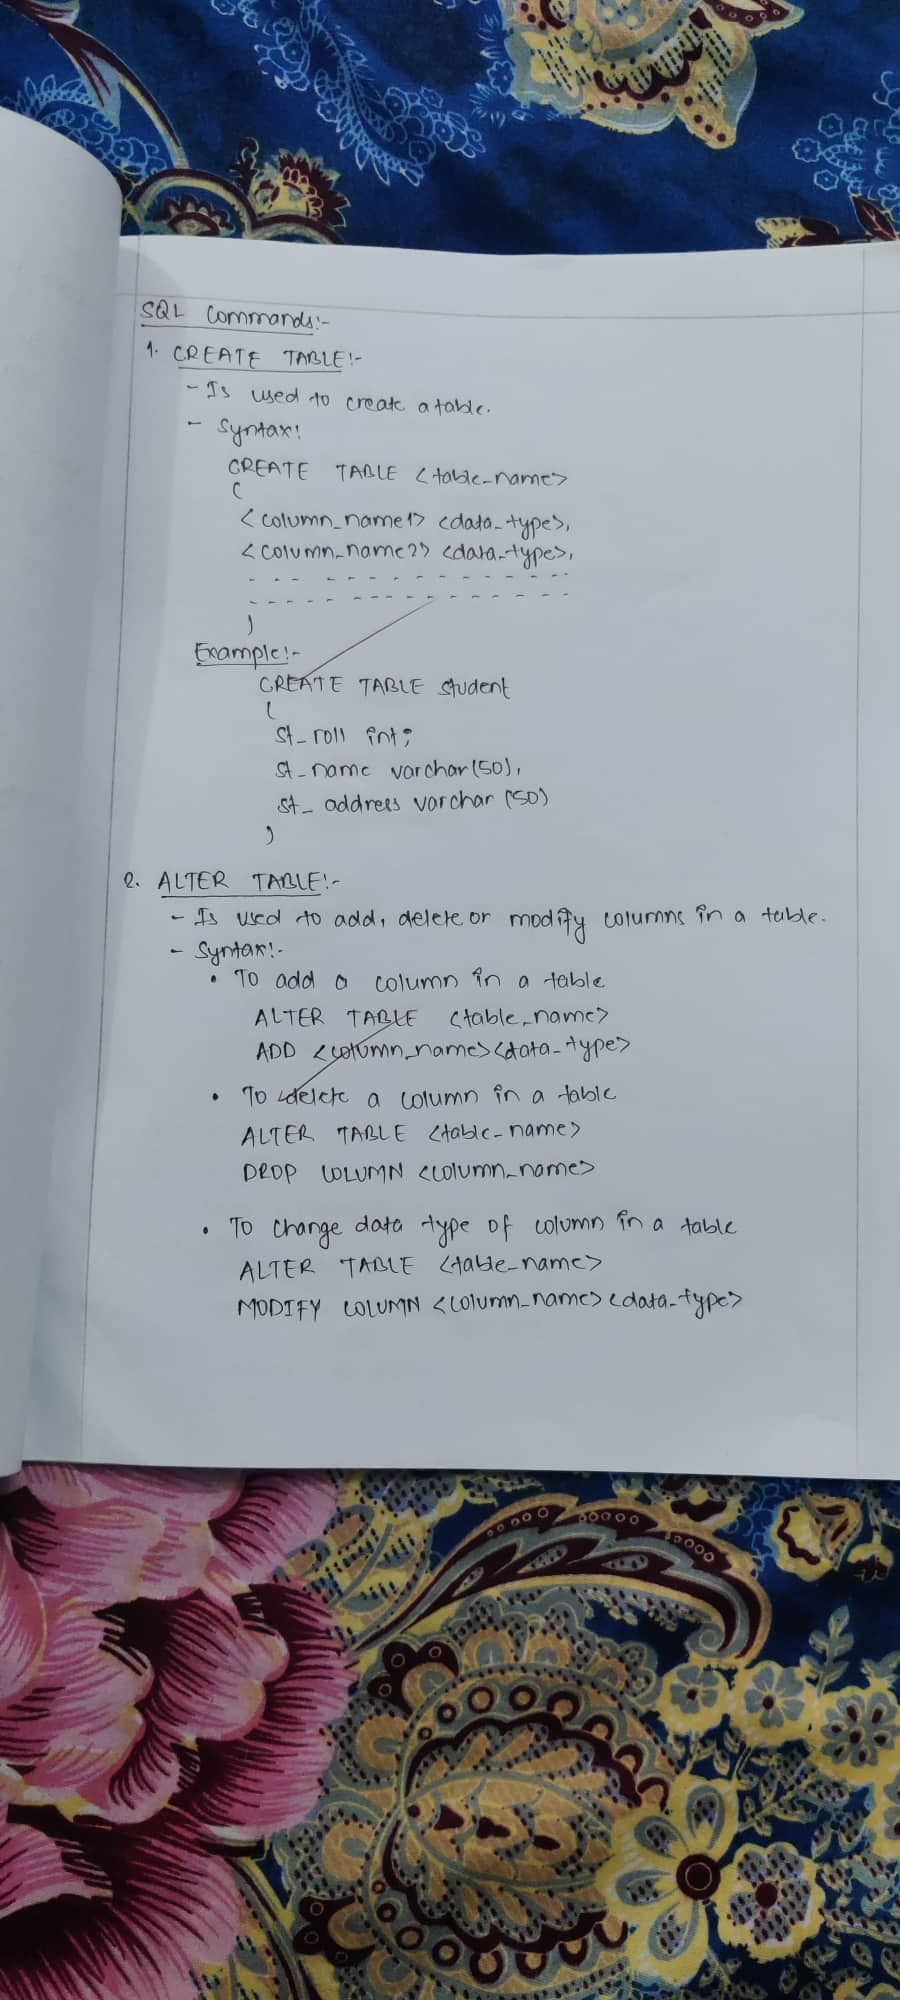 SQL Commands:-
1. CREATE TABLE:-
- Is used to create a table.
- Syntax:
CREATE TABLE <table_name>
(
<column_name1> <data_type>,
<column_name2> <data_type>,
- - - - - - - - - - - - - -
- - - - - - - - - - - - - -
)
Example:-
CREATE TABLE student
(
st_roll int;
st_name varchar(50),
st_address varchar (50)
)
2. ALTER TABLE:-
- Is used to add, delete or modify columns in a table.
- Syntax:-
• To add a column in a table
ALTER TABLE <table_name>
ADD <column_name> <data_type>
• To delete a column in a table
ALTER TABLE <table_name>
DROP COLUMN <column_name>
• To change data type of column in a table
ALTER TABLE <table_name>
MODIFY COLUMN <column_name> <data_type>